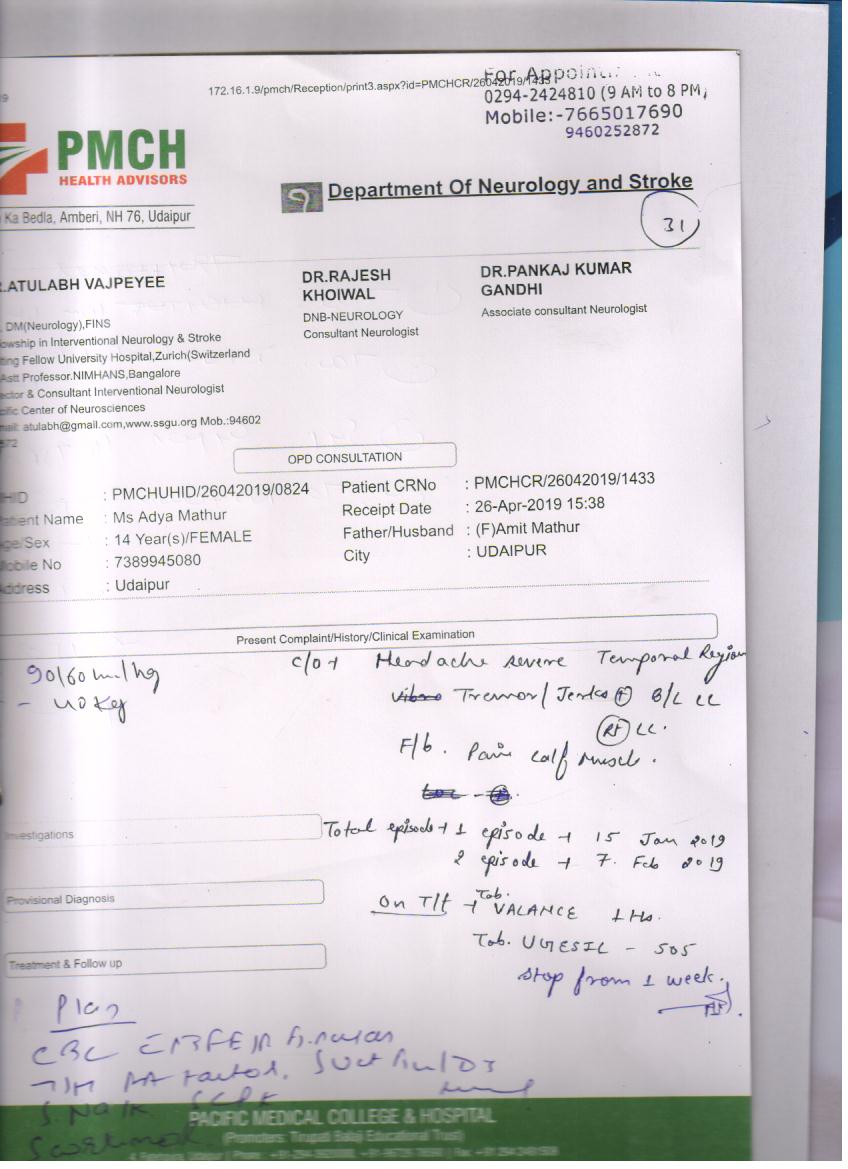 172.16.1.9/pmch/Reception/print3.aspx?id=PMCHCR/26042019/1433
For
0294-2424810 (9 AM to 8 PM,
Mobile:-7665017690
9460252872
PMCH
HEALTH ADVISORS
Ka Bedla, Amberi, NH 76, Udaipur
Department Of Neurology and Stroke
31
.ATULABH VAJPEYEE
DR.RAJESH KHOIWAL
DR.PANKAJ KUMAR GANDHI
DNB-NEUROLOGY
Consultant Neurologist
Associate consultant Neurologist
, DM(Neurology),FINS
owship in Interventional Neurology & Stroke
ting Fellow University Hospital,Zurich(Switzerland
Astt Professor.NIMHANS,Bangalore
ector & Consultant Interventional Neurologist
ific Center of Neurosciences
mail: atulabh@gmail.com,www.ssgu.org Mob.:94602
OPD CONSULTATION
HID : PMCHUHID/26042019/0824 Patient CRNo : PMCHCR/26042019/1433
atient Name : Ms Adya Mathur Receipt Date : 26-Apr-2019 15:38
ge/Sex : 14 Year(s)/FEMALE Father/Husband : (F)Amit Mathur
obile No : 7389945080 City : UDAIPUR
Address : Udaipur
Present Complaint/History/Clinical Examination
90/60 m/hg
- 40 Kg
c/o → Headache severe Temporal Region
Tremor/ Jerks (+) B/L LL
(Rt) LL.
F/b. Pain calf muscle.
Investigations
Total episode → 1 episode → 15 Jan 2019
2 episode → 7. Feb 2019
Provisional Diagnosis
On T/t → Tab. VALANCE 1 Hs.
Tab. UGESIL - SOS
Treatment & Follow up
Stop from 1 week.
Plan
CBC
RA Factor.
S. Na/K
PACIFIC MEDICAL COLLEGE & HOSPITAL
(Promoters: Tirupati Balaji Educational Trust)